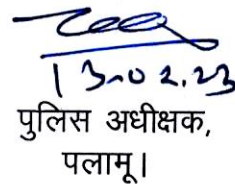 13.02.23
पुलिस अधीक्षक,
पलामू।